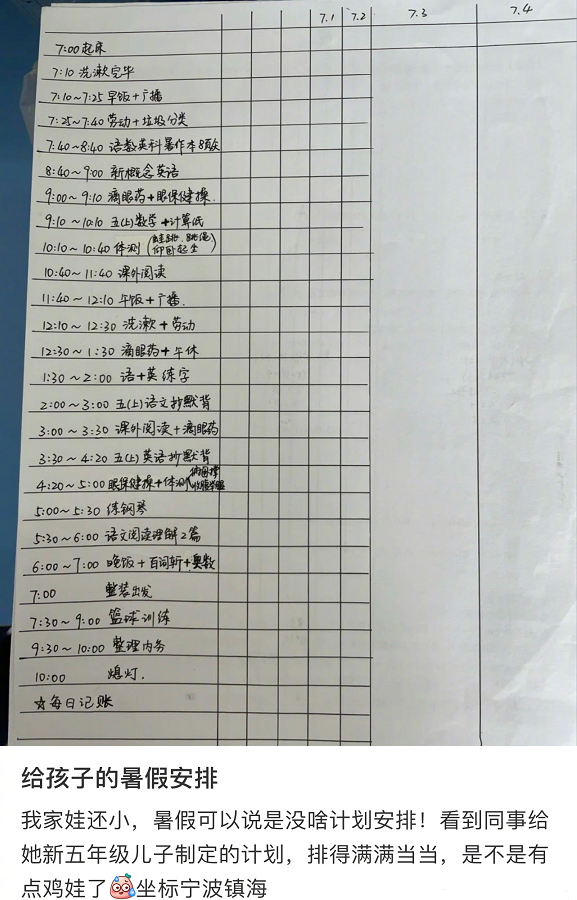 7.1 7.2 7.3 7.4
7:00 起床
7:10 洗漱完毕
7:10~7:25 早饭+广播
7:25~7:40 劳动+垃圾分类
7:40~8:40 语数英科暑作本8页
8:40~9:00 新概念英语
9:00~9:10 滴眼药+眼保健操.
9:10~10:10 五(上)数学+计算纸
10:10~10:40 体测(蛙跳、跳绳 仰卧起坐)
10:40~11:40 课外阅读
11:40~12:10 午饭+广播.
12:10~12:30 洗漱+劳动
12:30~1:30 滴眼药+午休
1:30~2:00 语+英练字
2:00~3:00 五(上)语文抄默背
3:00~3:30 课外阅读+滴眼药
3:30~4:20 五(上)英语抄默背
4:20~5:00 眼保健操+体测
5:00~5:30 练钢琴
5:30~6:00 语文阅读理解2篇
6:00~7:00 晚饭+百词斩+奥数
7:00 整装出发
7:30~9:00 篮球训练
9:30~10:00 整理内务
10:00 熄灯.
☆每日记账
给孩子的暑假安排
我家娃还小，暑假可以说是没啥计划安排！看到同事给
她新五年级儿子制定的计划，排得满满当当，是不是有
点鸡娃了😰坐标宁波镇海